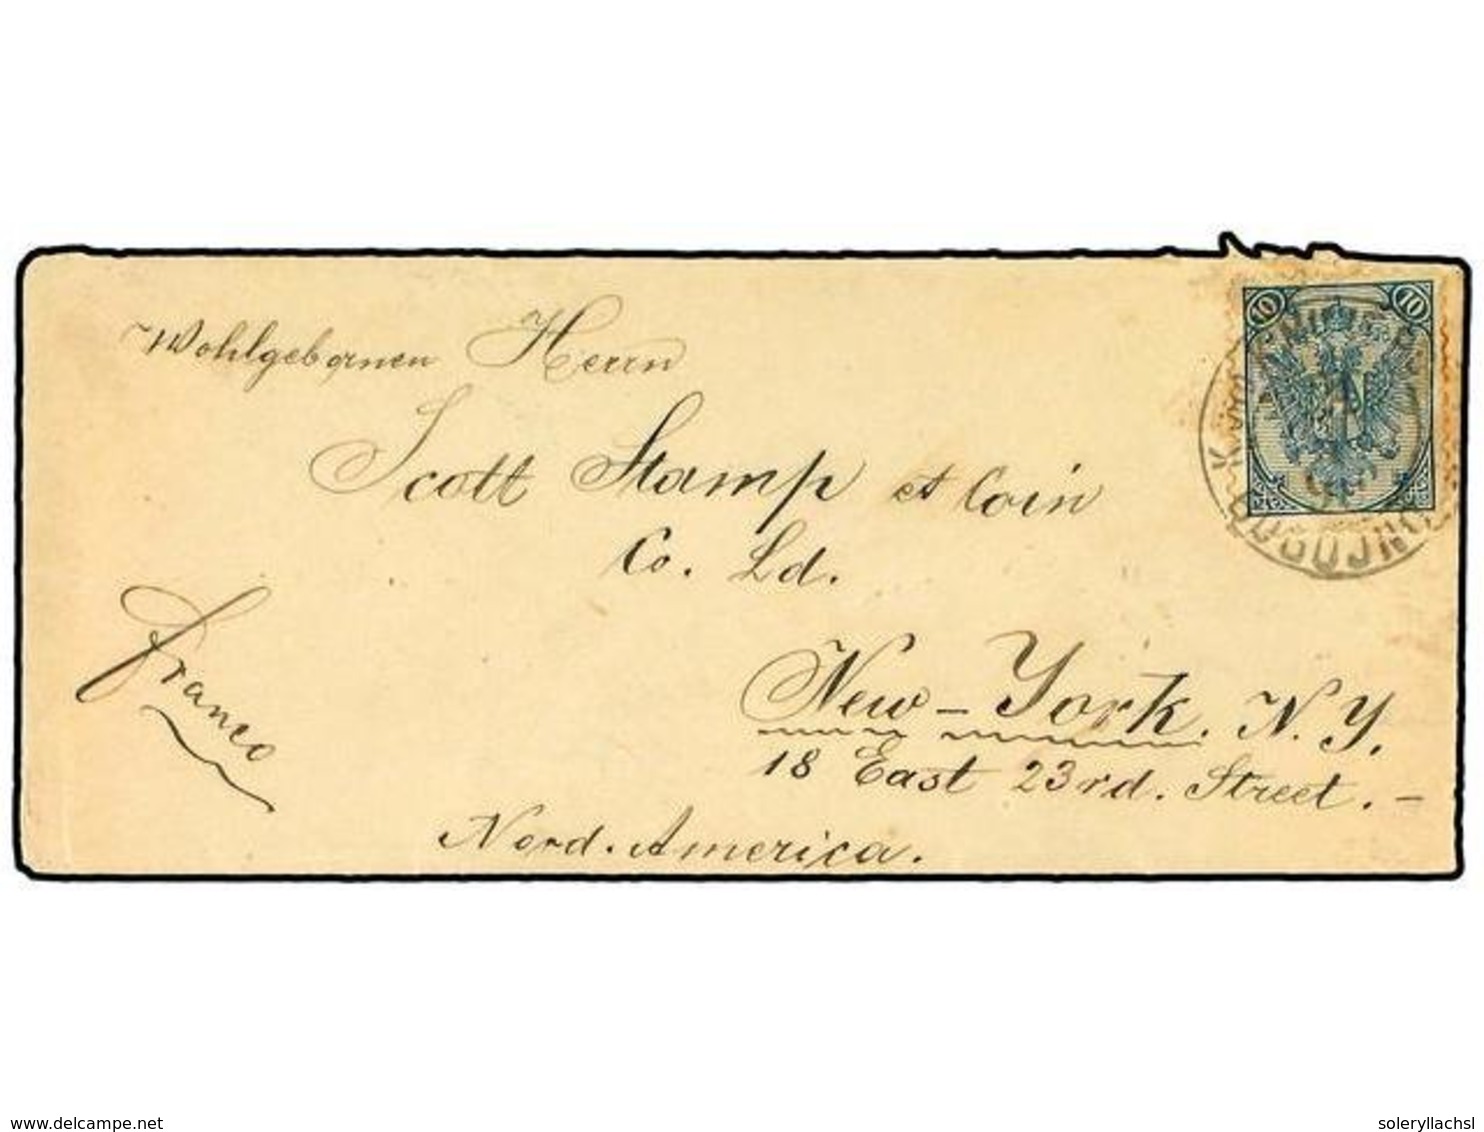 Wohlgebornen Herrn
10 10
Scott Stamp et Coin
Co. Ld.
Franco
New-York. N. Y.
18 East 23rd. Street. -
Nord. America.
delcampe.net
soleryllachsl